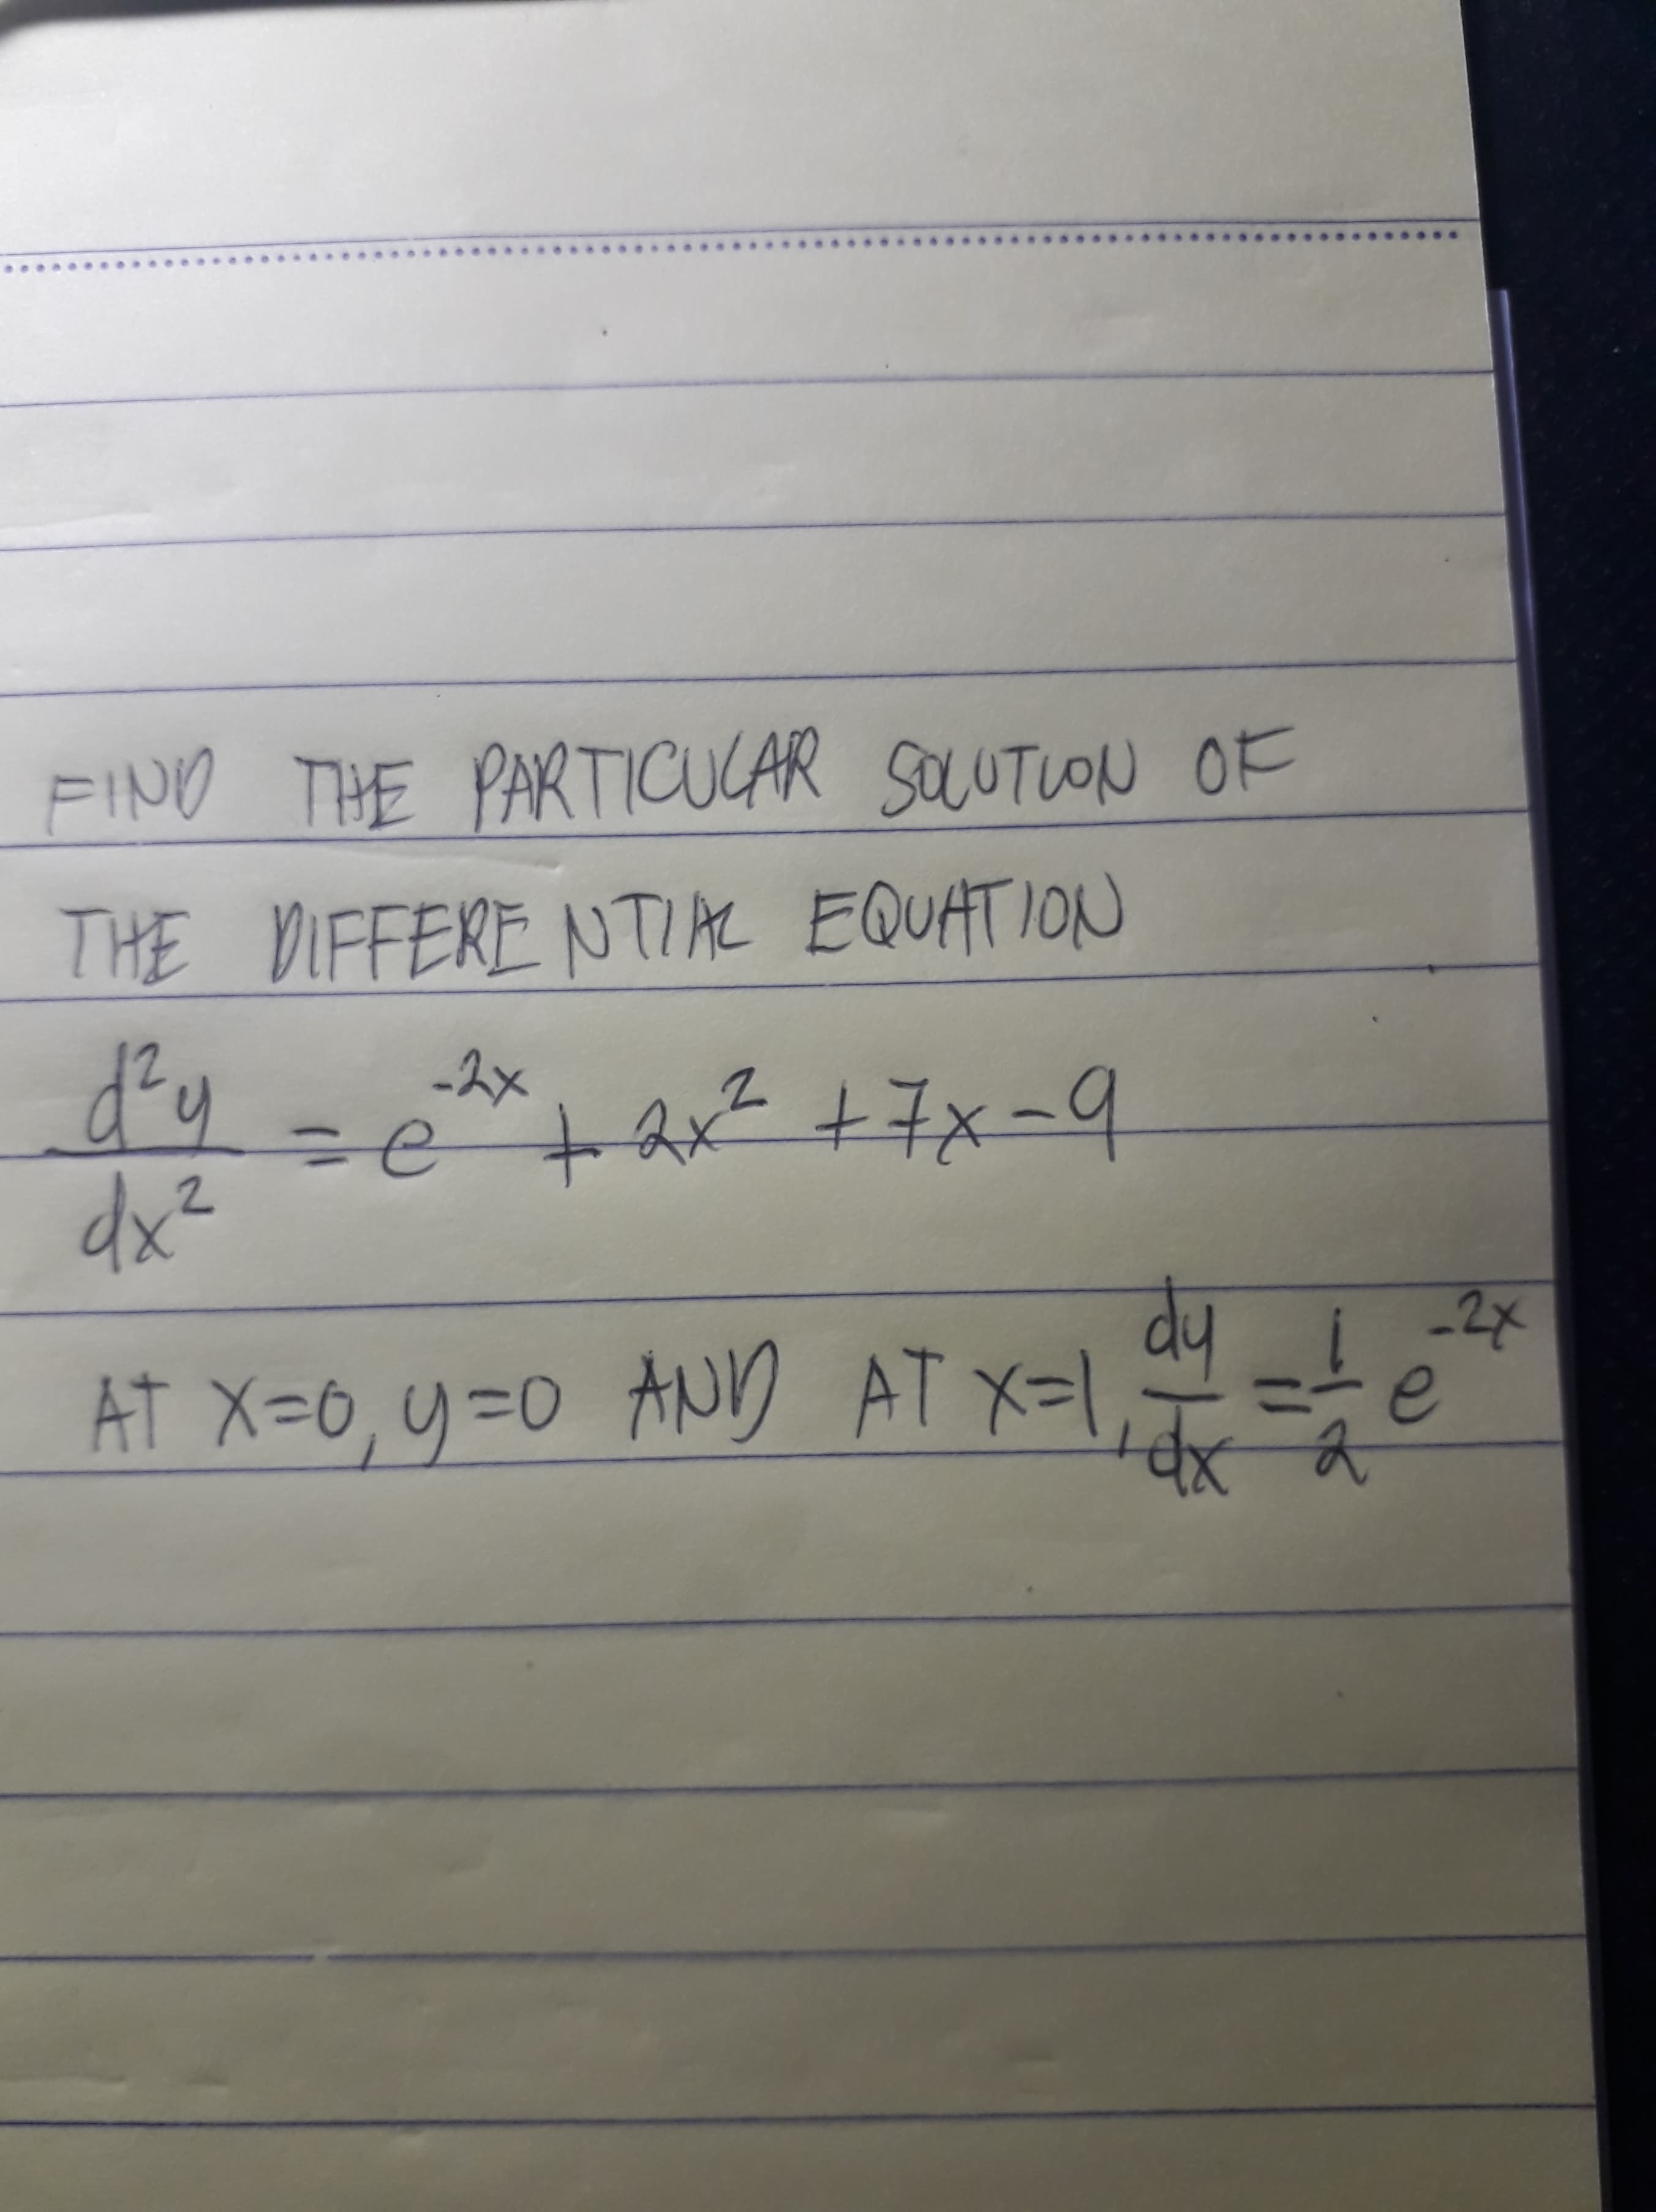 FIND THE PARTICULAR SOLUTION OF
THE DIFFERENTIAL EQUATION
d²y/dx² = e^(-2x) + 2x² + 7x - 9
AT X=0, y=0 AND AT X=1, dy/dx = 1/2 e^(-2x)